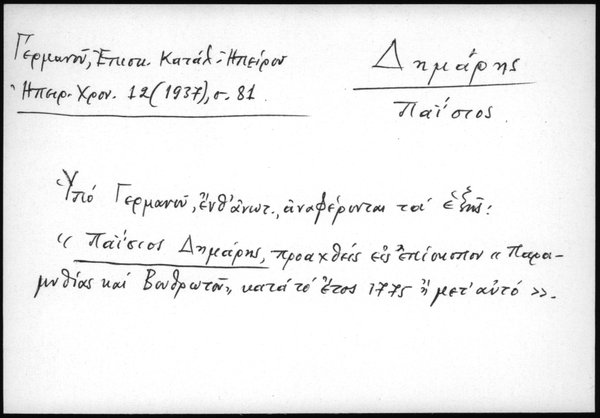 Γερμανοῦ, Ἐπισκ. Κατάλ. Ἠπείρου
Ἠπειρ. Χρον. 12 (1937), σ. 81.
Δημάρης
Παΐσιος
Ὑπό Γερμανοῦ, ἔνθ' ἀνωτ., ἀναφέρονται τά ἑξῆς:
« Παΐσιος Δημάρης, προαχθείς εἰς ἐπίσκοπον « Παρα-
μυθίας καί Βουθρωτοῦ», κατά τό ἔτος 1775 ἤ μετ' αὐτό ».